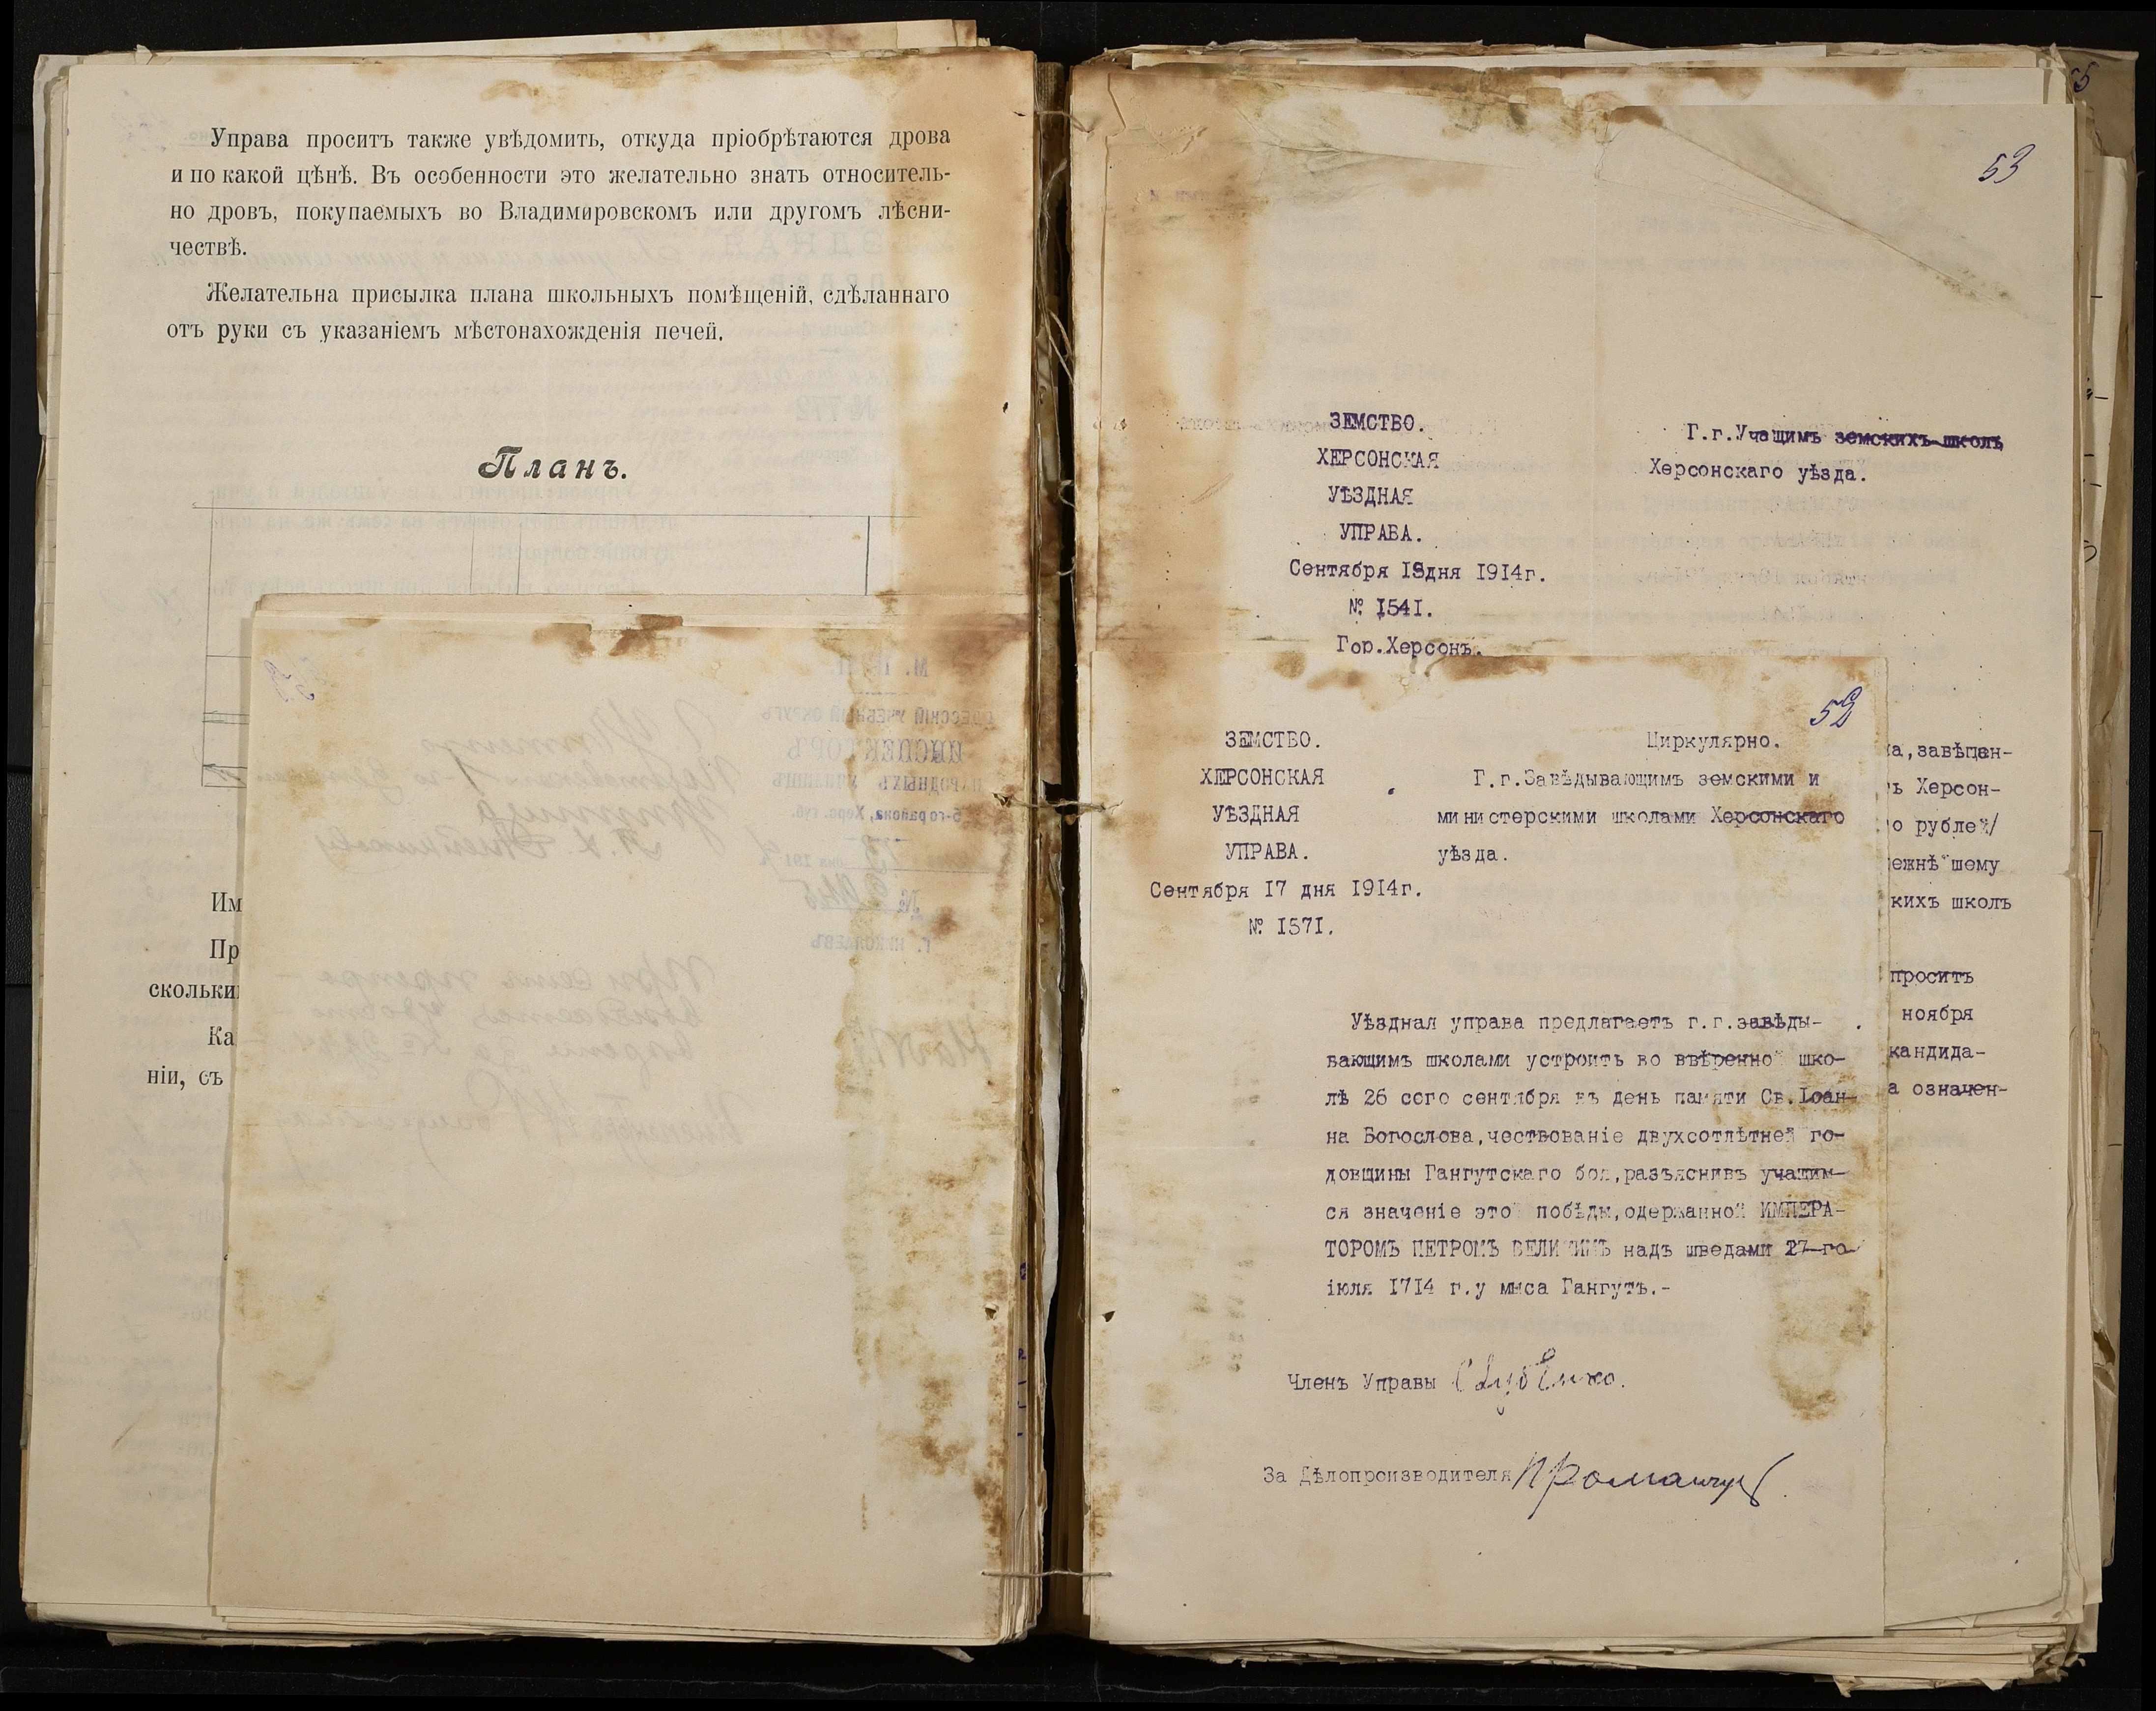 Управа проситъ также увѣдомить, откуда пріобрѣтаются дрова
и по какой цѣнѣ. Въ особенности это желательно знать относитель-
но дровъ, покупаемыхъ во Владимировскомъ или другомъ лѣсни-
чествѣ.
Желательна присылка плана школьныхъ помѣщеній, сдѣланнаго
отъ руки съ указаніемъ мѣстонахожденія печей.
Планъ.
Им
Пр
скольки
Ка
ніи, съ
53
ЗЕМСТВО.
ХЕРСОНСКАЯ
УѢЗДНАЯ
УПРАВА.
Сентября 18дня 1914г.
№ 1541.
Гор.Херсонъ.
Г.г.Учащимъ земскихъ школъ
Херсонскаго уѣзда.
а,завѣщан-
ъ Херсон-
о рублей/
ежнѣйшему
кихъ школъ
проситъ
ноября
кандида-
а означен-
52
ЗЕМСТВО.
ХЕРСОНСКАЯ
УѢЗДНАЯ
УПРАВА.
Сентября 17 дня 1914г.
№ 1571.
Циркулярно.
Г.г.Завѣдывающимъ земскими и
министерскими школами Херсонскаго
уѣзда.
Уѣздная управа предлагаетъ г.г.завѣды-
вающимъ школами устроить во ввѣренной шко-
лѣ 26 сего сентября въ день памяти Св.Іоан-
на Богослова,чествованіе двухсотлѣтней го-
довщины Гангутскаго боя,разъяснивъ учащим-
ся значеніе этой побѣды,одержанной ИМПЕРА-
ТОРОМЪ ПЕТРОМЪ ВЕЛИКИМЪ надъ шведами 27-го
іюля 1714 г.у мыса Гангутъ.-
Членъ Управы
За Дѣлопроизводителя
5